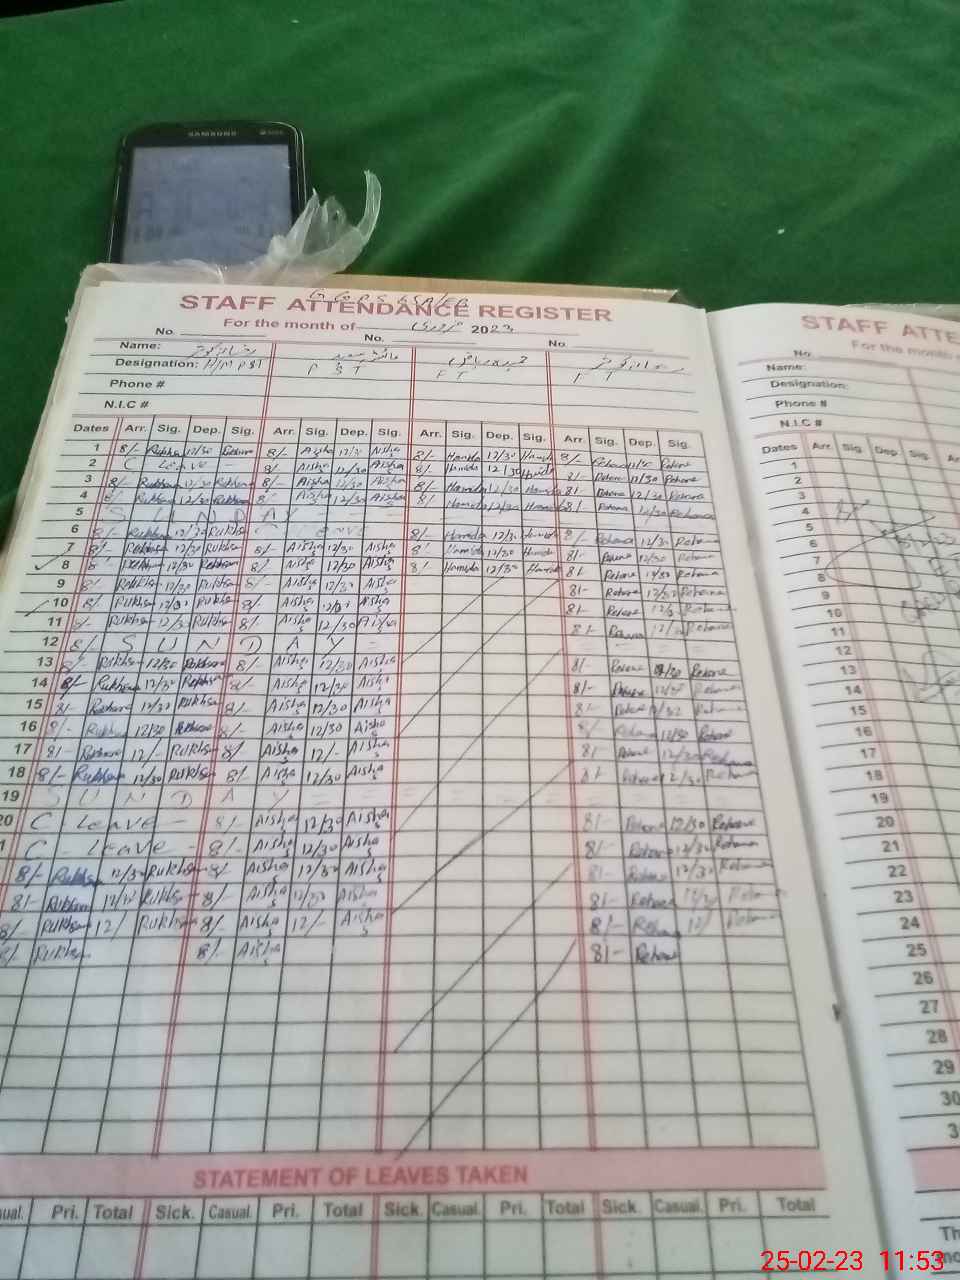 SAMSUNG
STAFF ATTENDANCE REGISTER
For the month of فروری 2023
No. No. No.
Name:
Designation: H/M PST P S T F T F T
Phone #
N.I.C #
Dates Arr. Sig. Dep. Sig. Arr. Sig. Dep. Sig. Arr. Sig. Dep. Sig. Arr. Sig. Dep. Sig.
1 8/- Rukhsa 12/30 8/- Aisha 12/30 Aisha 8/- Hamida 12/30 Hamida 8/- Rehana 12/30 Rehana
2 C Leave - 8/- Aisha 12/30 Aisha 8/- Hamida 12/30 Hamida 8/- Rehana 12/30 Rehana
3 8/- Rukhsan 12/30 Rukhsan 8/- Aisha 12/30 Aisha 8/- Hamida 12/30 Hamida 8/- Rehana 12/30 Rehana
4 8/- Rukhsan 12/30 Rukhsan 8/- Aisha 12/30 Aisha 8/- Hamida 12/30 Hamida 8/- Rehana 12/30 Rehana
5 S U N D A Y
6 8/- Rukhsan 12/30 Rukhsa C Leave 8/- Hamida 12/30 Hamida 8/- Rehana 12/30 Rehana
7 8/- Rukhsan 12/30 Rukhsa 8/- Aisha 12/30 Aisha 8/- Hamida 12/30 Hamida 8/- Rehana 12/30 Rehana
8 8/- Rukhsan 12/30 Rukhsan 8/- Aisha 12/30 Aisha 8/- Hamida 12/30 Hamida 8/- Rehana 12/30 Rehana
9 8/- Rukhsan 12/30 Rukhsa 8/- Aisha 12/30 Aisha 8/- Rehana 12/30 Rehana
10 8/- Rukhsan 12/30 Rukhsa 8/- Aisha 12/30 Aisha 8/- Rehana 12/30 Rehana
11 8/- Rukhsan 12/30 Rukhsan 8/- Aisha 12/30 Aisha 8/- Rehana 12/30 Rehana
12 S U N D A Y
13 8/- Rukhsan 12/30 Rukhsana 8/- Aisha 12/30 Aisha 8/- Rehana 12/30 Rehana
14 8/- Rukhsan 12/30 Rukhsan 8/- Aisha 12/30 Aisha 8/- Rehana 12/30 Rehana
15 8/- Rukhsana 12/30 Rukhsan 8/- Aisha 12/30 Aisha 8/- Rehana 12/30 Rehana
16 8/- Rukhsan 12/30 Rukhsana 8/- Aisha 12/30 Aisha 8/- Rehana 12/30 Rehana
17 8/- Rukhsan 12/- Rukhsan 8/- Aisha 12/- Aisha 8/- Rehana 12/30 Rehana
18 8/- Rukhsan 12/30 Rukhsan 8/- Aisha 12/30 Aisha 8/- Rehana 12/30 Rehana
19 S U N D A Y
20 C Leave - 8/- Aisha 12/30 Aisha 8/- Rehana 12/30 Rehana
1 C - Leave - 8/- Aisha 12/30 Aisha 8/- Rehana 12/30 Rehana
8/- Rukhsa 12/30 Rukhsan 8/- Aisha 12/30 Aisha 8/- Rehana 12/30 Rehana
8/- Rukhsan 12/30 Rukhsan 8/- Aisha 12/30 Aisha 8/- Rehana 12/30 Rehana
8/- Rukhsan 12/ Rukhsan 8/- Aisha 12/- Aisha 8/- Rehana 12/ Rehana
8/- Rukhsan 8/- Aisha 8/- Rehana
STATEMENT OF LEAVES TAKEN
ual. Pri. Total Sick. Casual. Pri. Total Sick. Casual. Pri. Total Sick. Casual. Pri. Total
STAFF ATTE
For the month
No.
Name:
Designation:
Phone #
N.I.C #
Dates Arr. Sig. Dep. Sig.
1
2
3
4
5
6
7
8
9
10
11
12
13
14
15
16
17
18
19
20
21
22
23
24
25
26
27
28
29
30
3
25-02-23 11:53